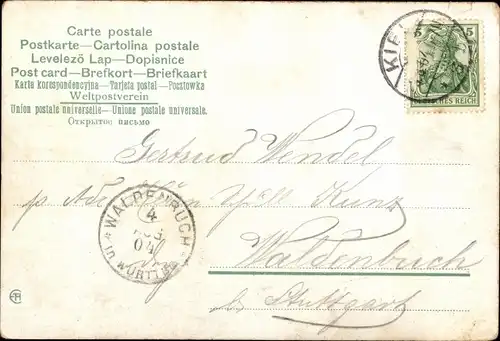 Carte postale
Postkarte—Cartolina postale
Levelező Lap—Dopisnice
Post card—Brefkort—Briefkaart
Karta korespondencyjna—Tarjeta postal—Pocztowka
Weltpostverein
Union postale universelle—Unione postale universale.
Открытое письмо
KIEL
5 5
DEUTSCHES REICH
Gertrud Wendel
p. Adr. Kunz
WALDENBUCH
4
AUG
04
IN WÜRTT.
Waldenbuch
b/ Stuttgart